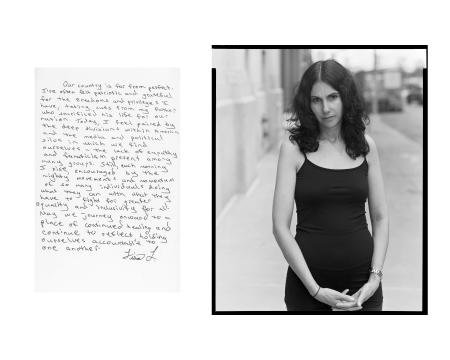 Our country is far from perfect.
I've often felt patriotic and grateful
for the freedoms and privileges I
have, taking cues from my father
who sacrificed his life for our
nation. Today, I feel pained by
the deep divisions within America
and the media and political
silos in which we find
ourselves - the lack of empathy
and fanaticism present among
many groups. Still, each morning
I rise encouraged by the
mighty movements and momentum
of so many individuals doing
what they can with what they
have to fight for greater
equality and inclusivity for all.
May we journey onward to a
place of continued healing and
continue to reflect holding
ourselves accountable to
one another.